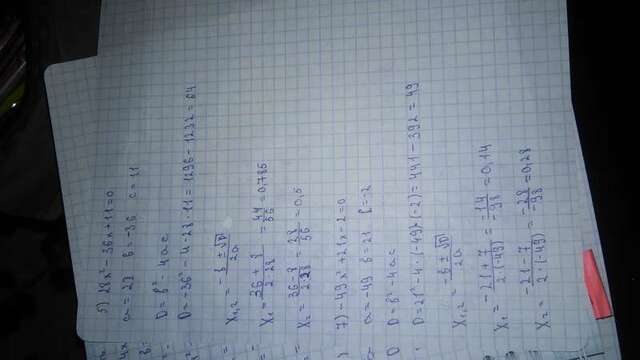 5) 28x² - 36x + 11 = 0
a = 28 b = -36 c = 11
D = b² - 4ac
D = -36² - 4·28·11 = 1296 - 1232 = 64
X₁,₂ = (-b ± √D) / 2a
X₁ = (36 + 8) / (2·28) = 44/56 = 0,785
X₂ = (36 - 8) / (2·28) = 28/56 = 0,5
7) -49x² + 21x - 2 = 0
a = -49 b = 21 c = -2
D = b² - 4ac
D = 21² - 4·(-49)·(-2) = 441 - 392 = 49
X₁,₂ = (-b ± √D) / 2a
X₁ = (-21 + 7) / (2·(-49)) = -14/-98 = 0,14
X₂ = (-21 - 7) / (2·(-49)) = -28/-98 = 0,28